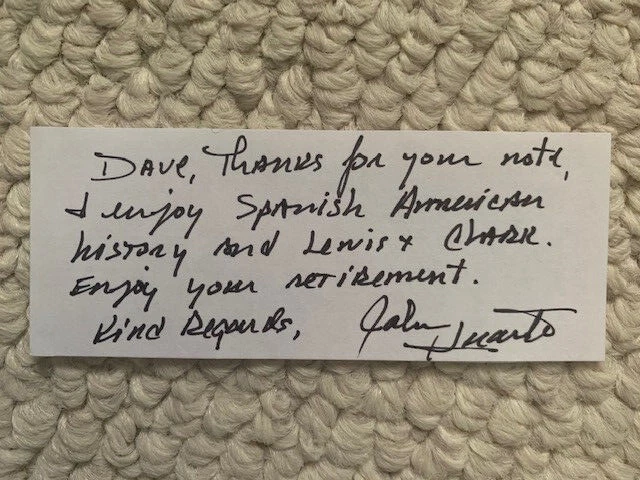 Dave, Thanks for your note,
I enjoy Spanish American
history and Lewis + Clark.
Enjoy your retirement.
Kind Regards, John Huarte